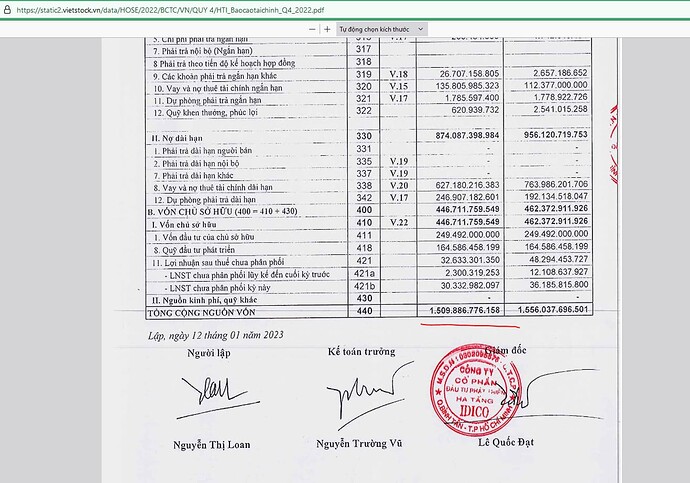 https://static2.vietstock.vn/data/HOSE/2022/BCTC/VN/QUY 4/HTI_Baocaotaichinh_Q4_2022.pdf
Tự động chọn kích thước
5. Chi phí phải trả ngắn hạn 315 V.17
7. Phải trả nội bộ (Ngắn hạn) 317
8 Phải trả theo tiến độ kế hoạch hợp đồng 318
9. Các khoản phải trả ngắn hạn khác 319 V.18 26.707.158.805 2.657.186.652
10. Vay và nợ thuê tài chính ngắn hạn 320 V.15 135.805.985.323 112.377.000.000
11. Dự phòng phải trả ngắn hạn 321 V.17 1.785.597.400 1.778.922.726
12. Quỹ khen thưởng, phúc lợi 322 620.939.732 2.541.015.258
II. Nợ dài hạn 330 874.087.398.984 956.120.719.753
1. Phải trả dài hạn người bán 331 - -
2. Phải trả dài hạn nội bộ 335 V.19 - -
7. Phải trả dài hạn khác 337 V.19 - -
8. Vay và nợ thuê tài chính dài hạn 338 V.20 627.180.216.383 763.986.201.706
12. Dự phòng phải trả dài hạn 342 V.17 246.907.182.601 192.134.518.047
B. VỐN CHỦ SỞ HỮU (400 = 410 + 430) 400 446.711.759.549 462.372.911.926
I. Vốn chủ sở hữu 410 V.22 446.711.759.549 462.372.911.926
1. Vốn đầu tư của chủ sở hữu 411 249.492.000.000 249.492.000.000
8. Quỹ đầu tư phát triển 418 164.586.458.199 164.586.458.199
11. Lợi nhuận sau thuế chưa phân phối 421 32.633.301.350 48.294.453.727
- LNST chưa phân phối lũy kế đến cuối kỳ trước 421a 2.300.319.253 12.108.637.927
- LNST chưa phân phối kỳ này 421b 30.332.982.097 36.185.815.800
II. Nguồn kinh phí, quỹ khác 430 - -
TỔNG CỘNG NGUỒN VỐN 440 1.509.886.776.158 1.556.037.696.501
Lập, ngày 12 tháng 01 năm 2023
Người lập Kế toán trưởng Giám đốc
CÔNG TY
CỔ PHẦN
ĐẦU TƯ PHÁT TRIỂN
HẠ TẦNG
IDICO
Q.BÌNH TÂN - T.P HỒ CHÍ MINH
Nguyễn Thị Loan Nguyễn Trường Vũ Lê Quốc Đạt